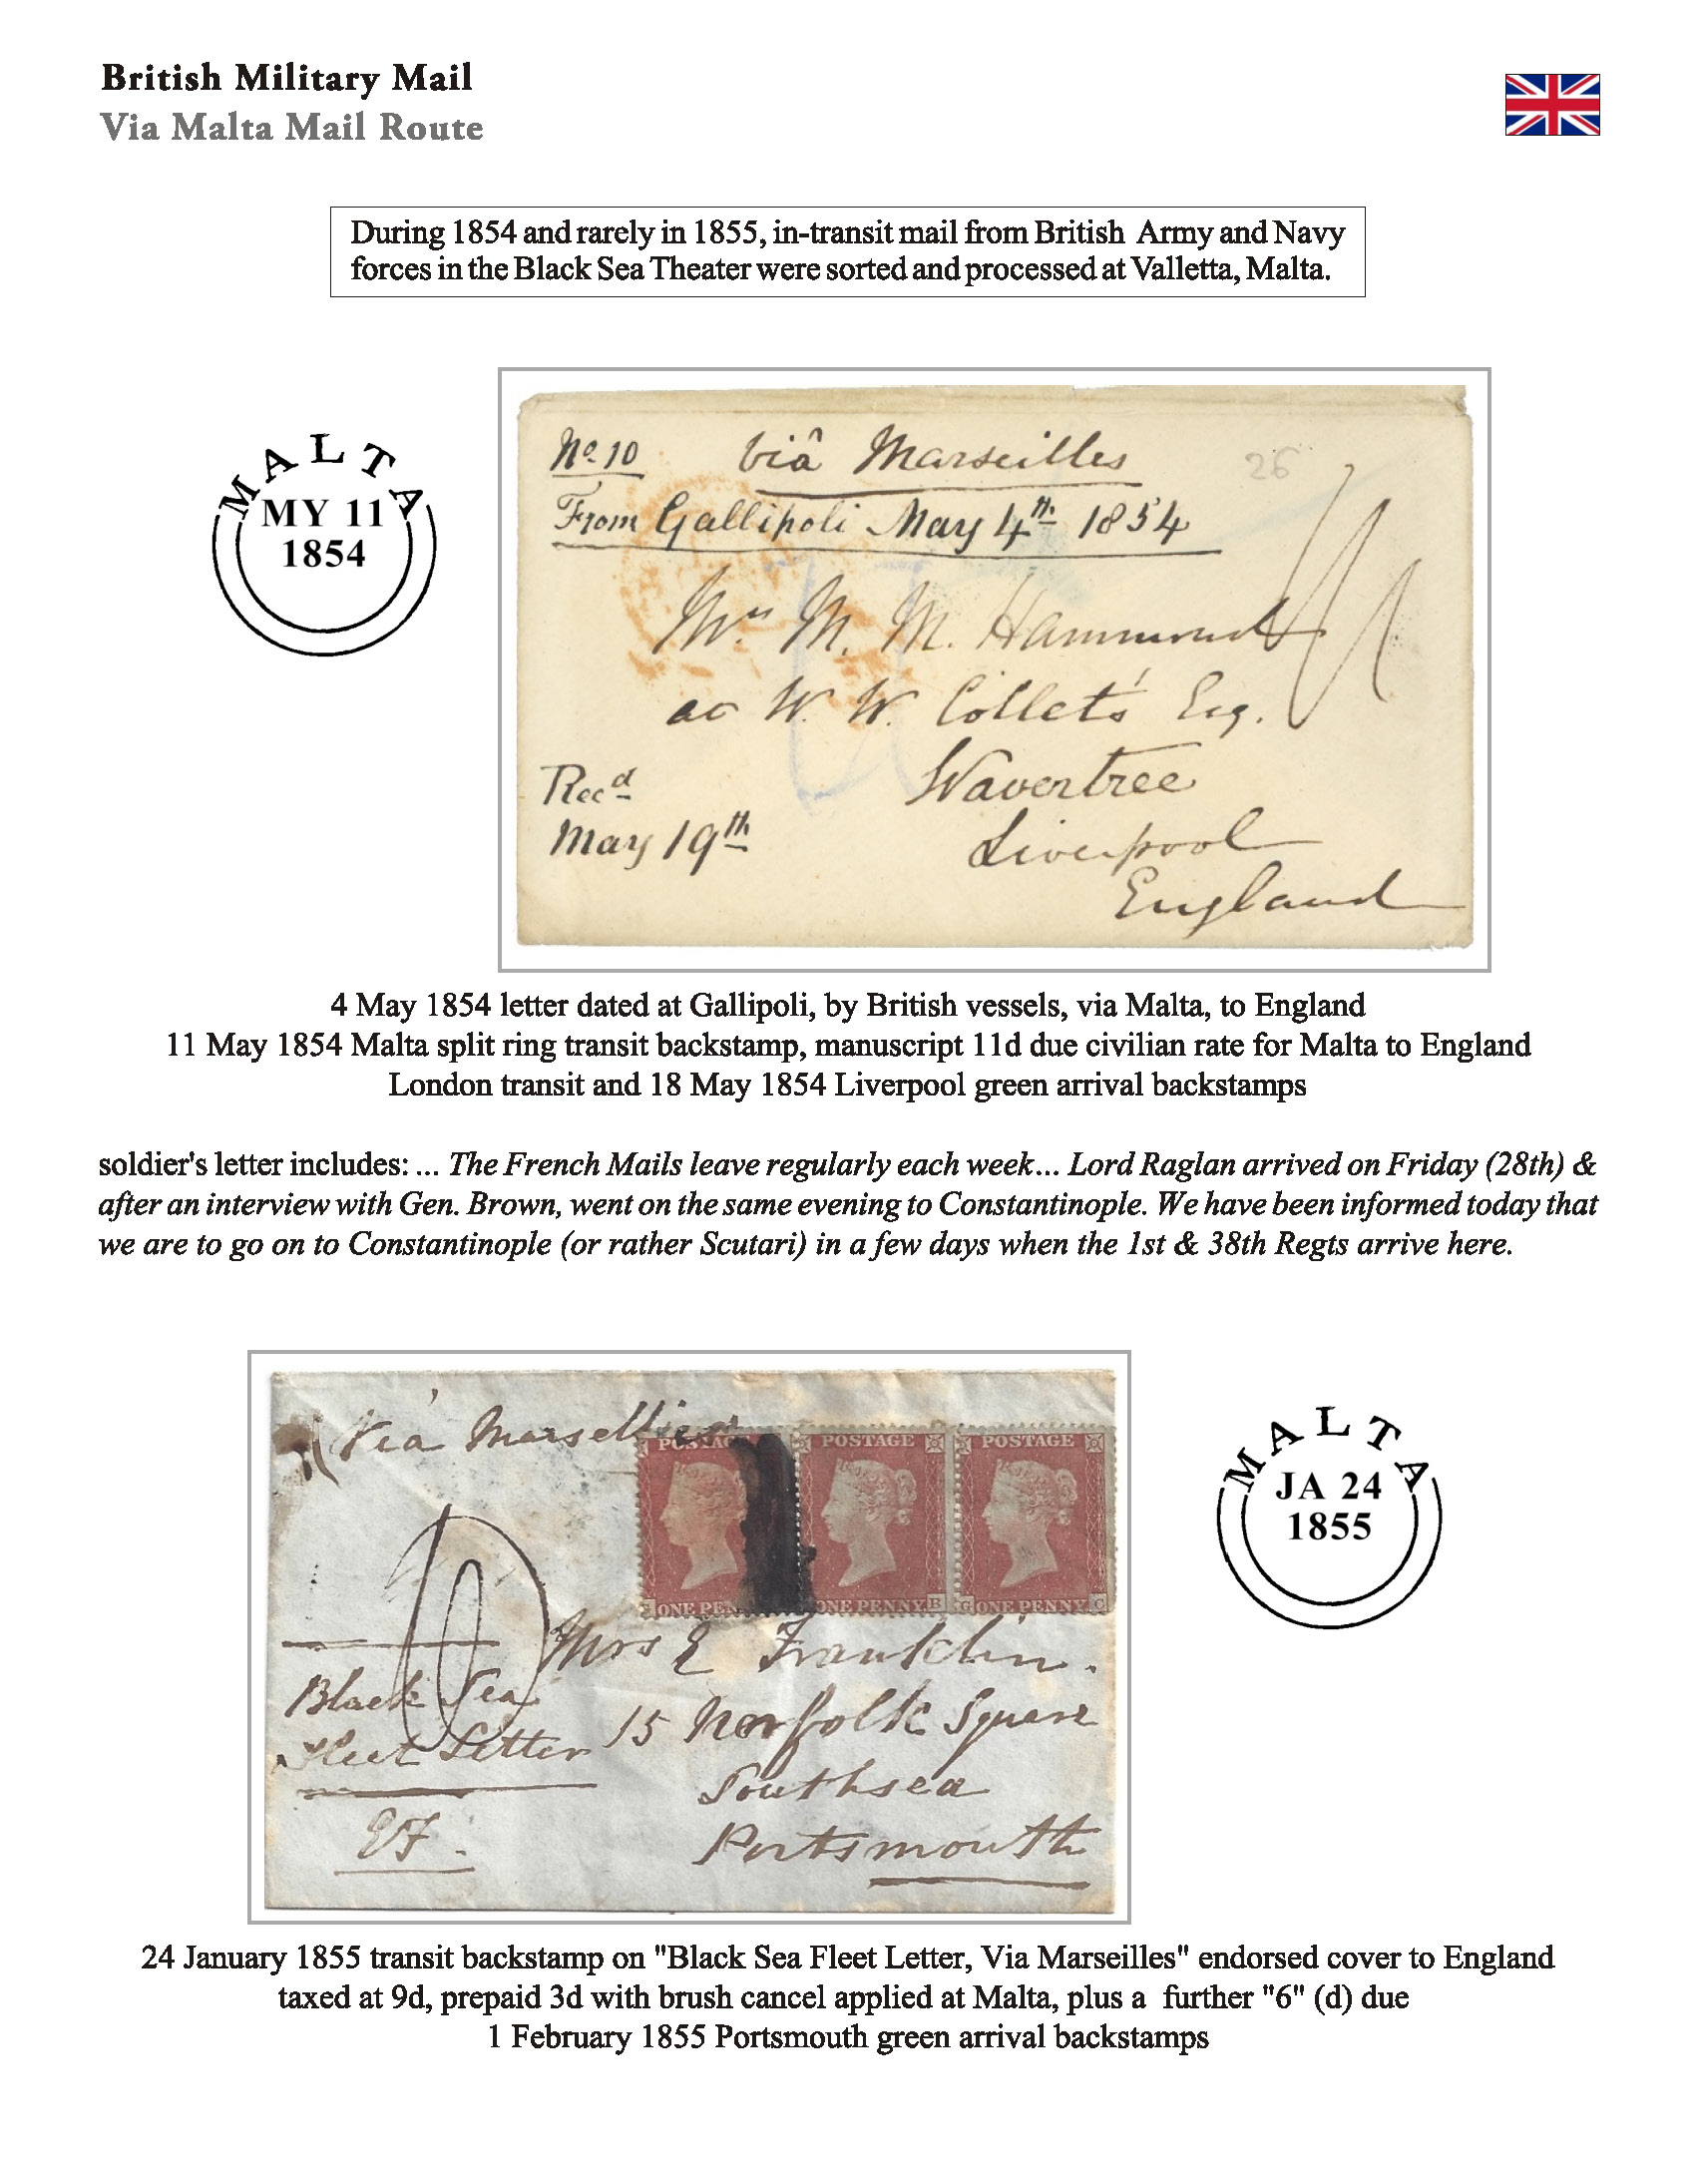 British Military Mail
Via Malta Mail Route
During 1854 and rarely in 1855, in-transit mail from British Army and Navy
forces in the Black Sea Theater were sorted and processed at Valletta, Malta.
MALTA
MY 11
1854
No. 10 viâ Marseilles
26
From Gallipoli May 4th 1854
Mrs M. M. Hammond
at W. W. Collet's Esq.
Wavertree
Recd
May 19th
Liverpool
England
4 May 1854 letter dated at Gallipoli, by British vessels, via Malta, to England
11 May 1854 Malta split ring transit backstamp, manuscript 11d due civilian rate for Malta to England
London transit and 18 May 1854 Liverpool green arrival backstamps
soldier's letter includes: ... The French Mails leave regularly each week... Lord Raglan arrived on Friday (28th) &
after an interview with Gen. Brown, went on the same evening to Constantinople. We have been informed today that
we are to go on to Constantinople (or rather Scutari) in a few days when the 1st & 38th Regts arrive here.
Via Marsellies
POSTAGE POSTAGE POSTAGE
ONE PEN ONE PENNY B G ONE PENNY C
MALTA
JA 24
1855
Mrs E Franklin.
Black Sea
Fleet Letter
15 Norfolk Square
Southsea
EF.
Portsmouth
24 January 1855 transit backstamp on "Black Sea Fleet Letter, Via Marseilles" endorsed cover to England
taxed at 9d, prepaid 3d with brush cancel applied at Malta, plus a further "6" (d) due
1 February 1855 Portsmouth green arrival backstamps